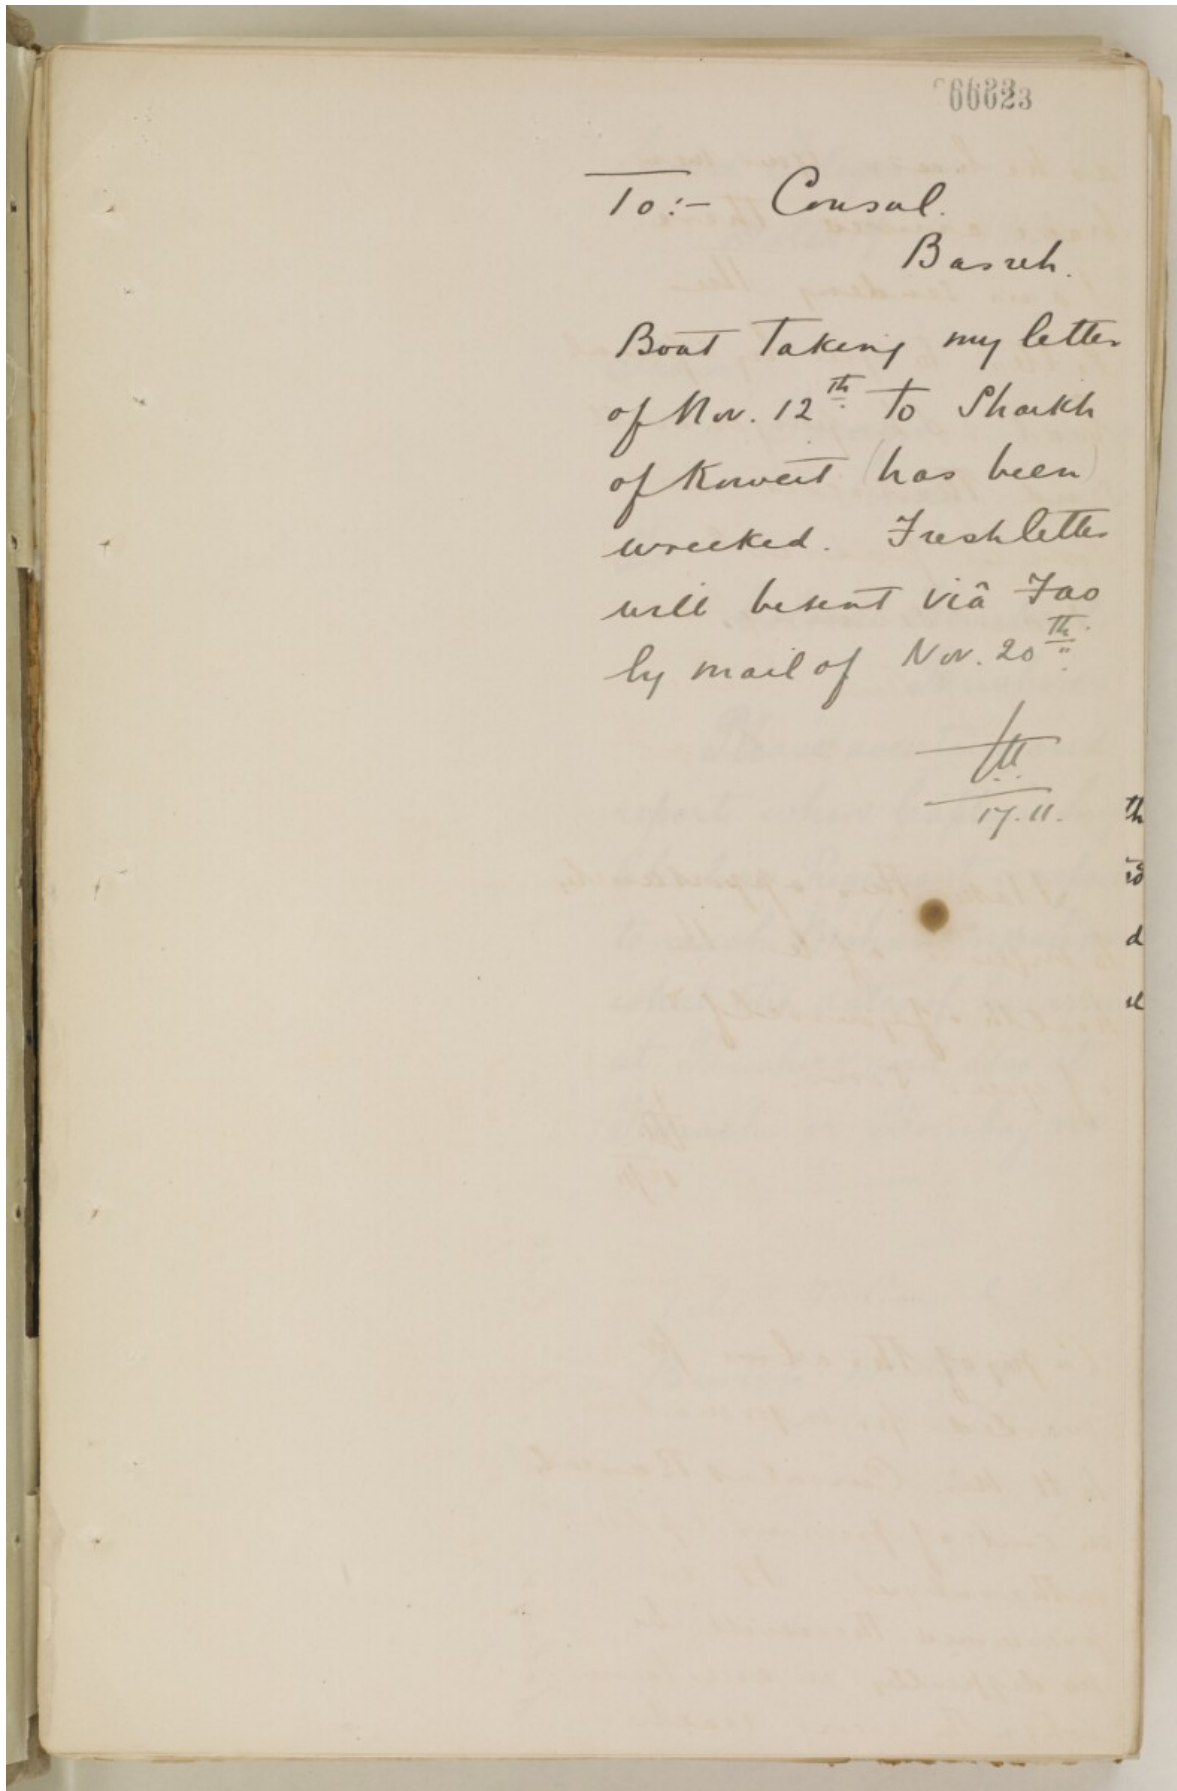 To:- Consul.
Basreh.
Boat taking my letter
of Nov. 12th to Shaikh
of Koweit (has been)
wrecked. Fresh letter
will be sent viâ Fao
by mail of Nov. 20th.
17.11.
th
d